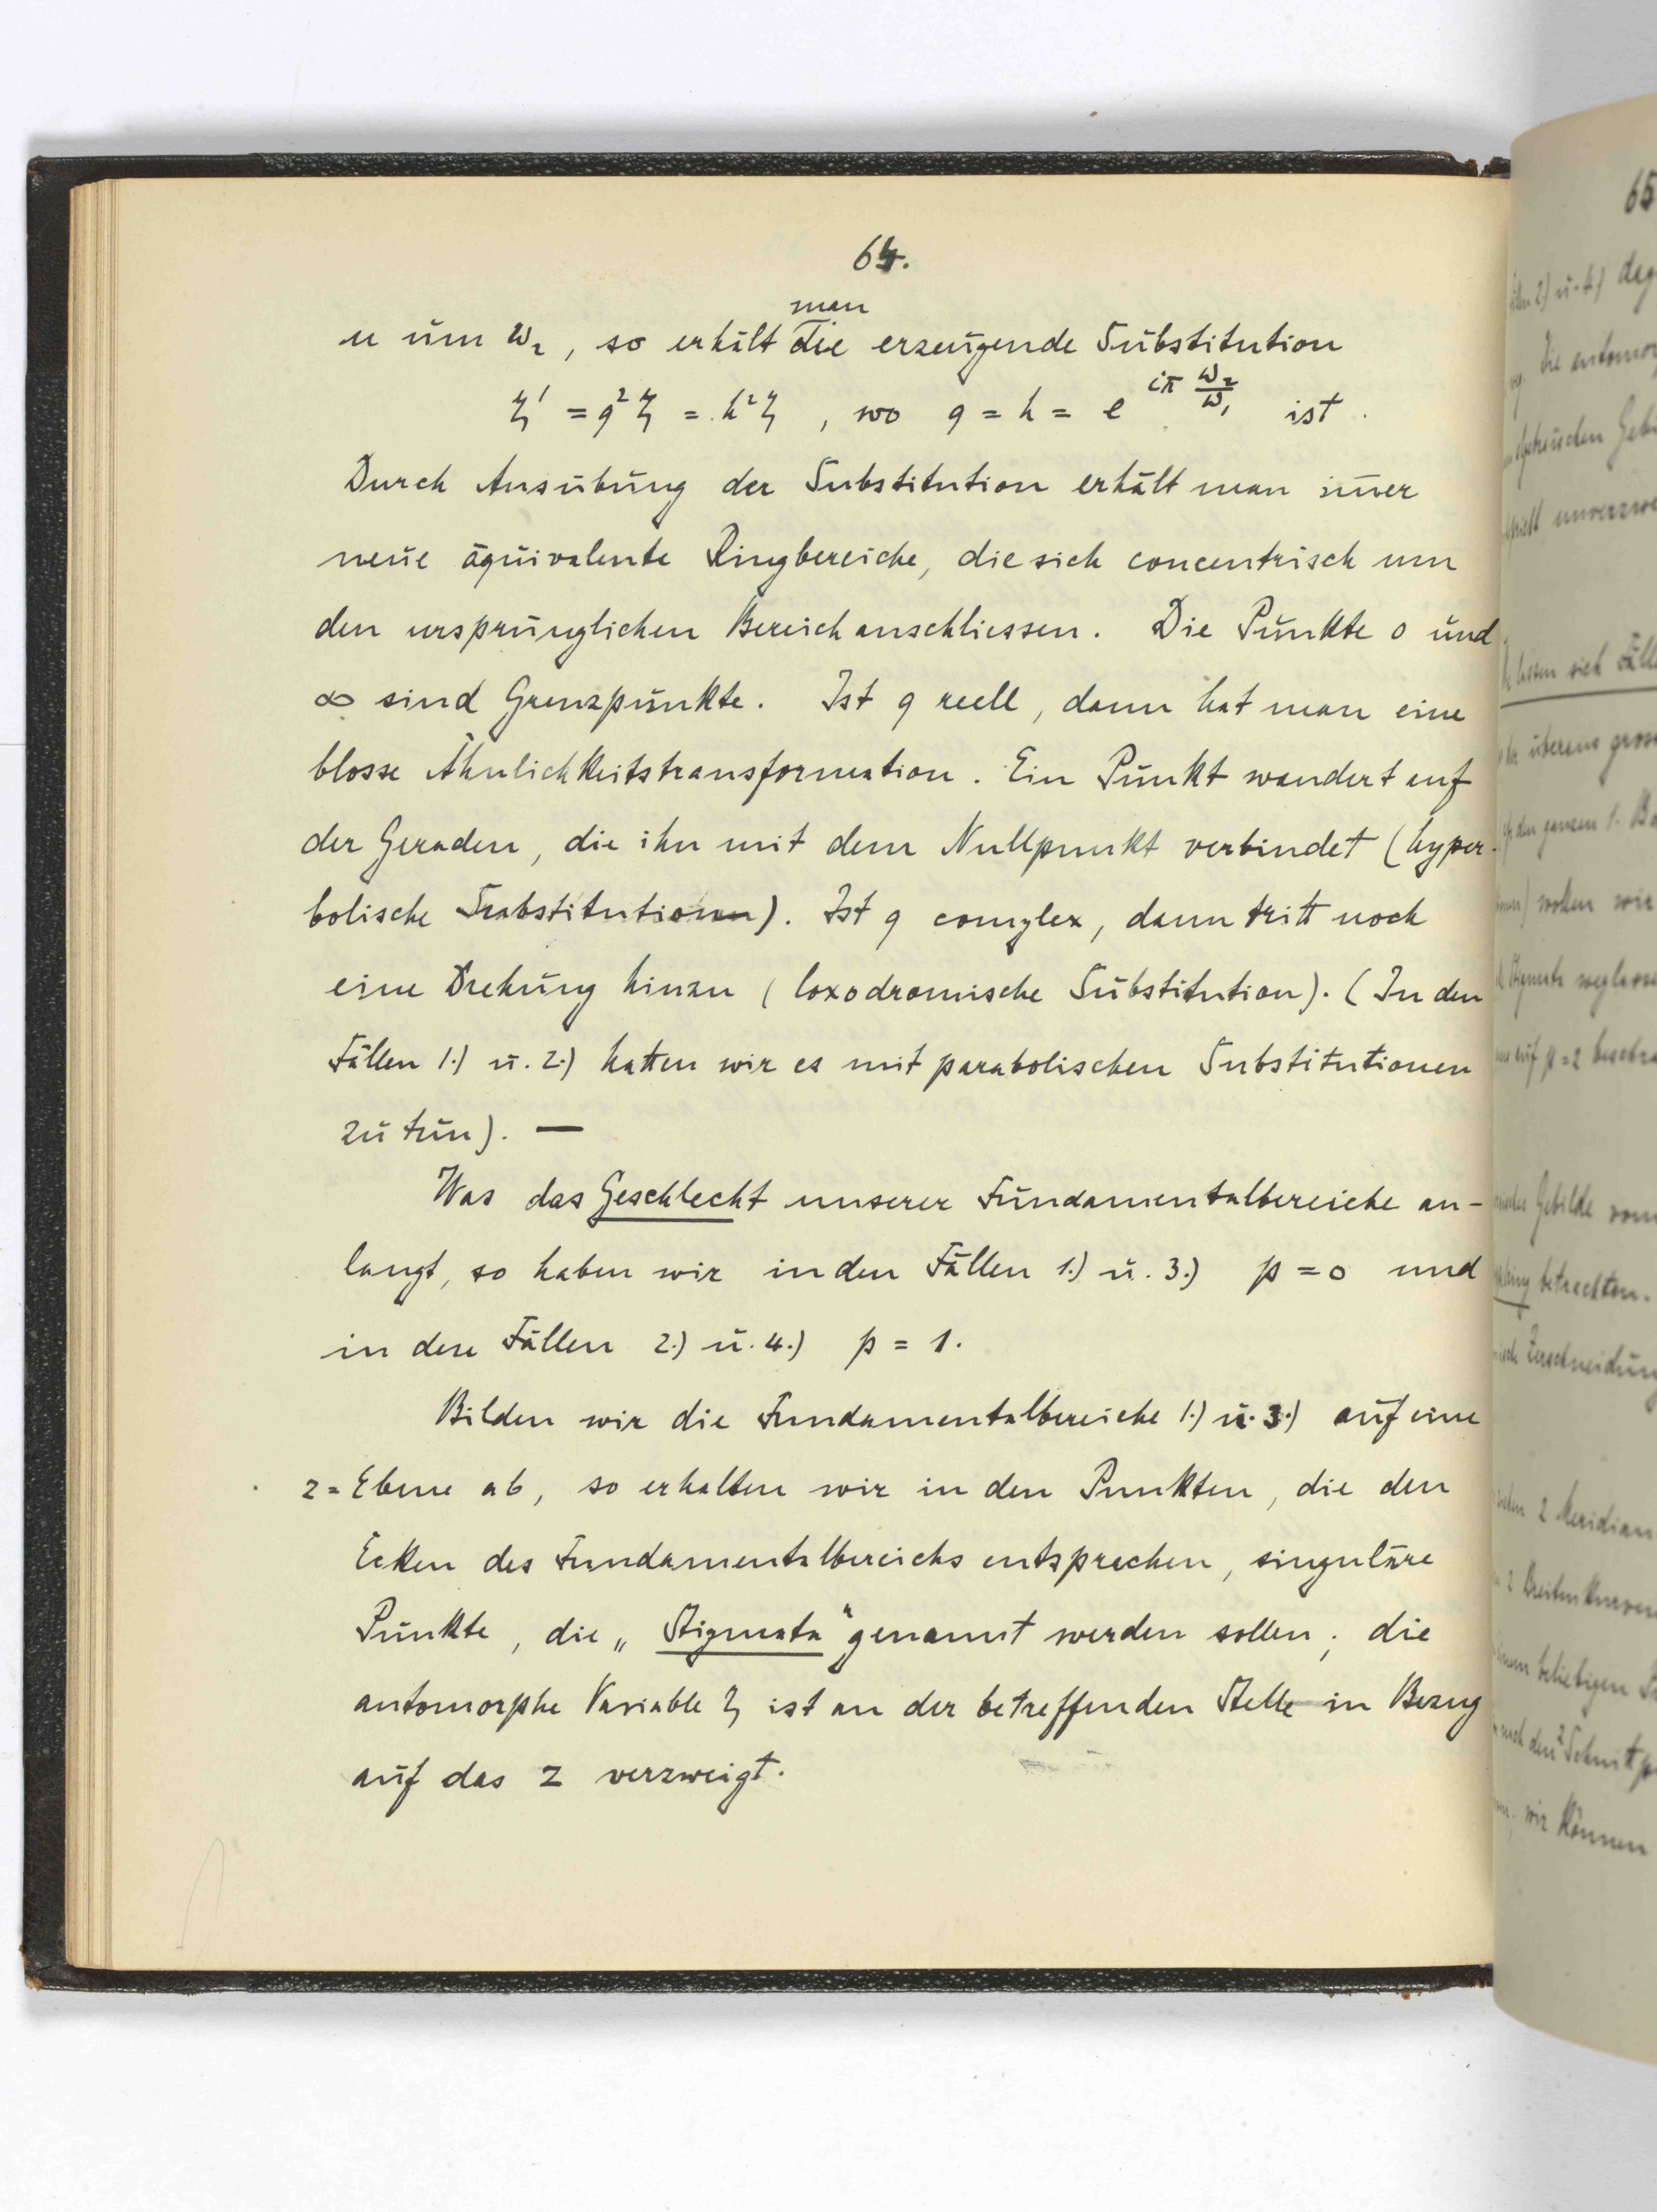 64.
man
u um ω₂, so erhält die erzeugende Substitution
ζ' = q²ζ = h²ζ, wo q = h = e^{iπ ω₂/ω₁} ist.
Durch Ausübung der Substitution erhält man im̄er
neue äquivalente Ringbereiche, die sich concentrisch um
den ursprünglichen Bereich anschliessen. Die Punkte 0 und
∞ sind Grenzpunkte. Ist q reell, dann hat man eine
blosse Ähnlichkeitstransformation. Ein Punkt wandert auf
der Geraden, die ihn mit dem Nullpunkt verbindet (hyper-
bolische Substitution). Ist q complex, dann tritt noch
eine Drehung hinzu (loxodromische Substitution). (In den
Fällen 1.) u. 2.) hatten wir es mit parabolischen Substitutionen
zu tun). —
Was das Geschlecht unserer Fundamentalbereiche an-
langt, so haben wir in den Fällen 1.) u. 3.) p = 0 und
in den Fällen 2.) u. 4.) p = 1.
Bilden wir die Fundamentalbereiche 1.) u. 3.) auf eine
z=Ebene ab, so erhalten wir in den Punkten, die den
Ecken des Fundamentalbereichs entsprechen, singuläre
Punkte, die „Stigmata" genannt werden sollen; die
automorphe Variable ζ ist an der betreffenden Stelle in Bezug
auf das z verzweigt.
65
2) u. 4)
Die automor
Gebi
unverzwe
lassen sich Fälle
überaus gross
den ganzen 1.
wollen wir
Stigmata weglasse
auf p = 2 beschrä
Gebilde vom
betrachten.
Zerschneidung
2 Meridian
2 Breitenkurven
beliebigen
nach den 2 Schnittp
wir können